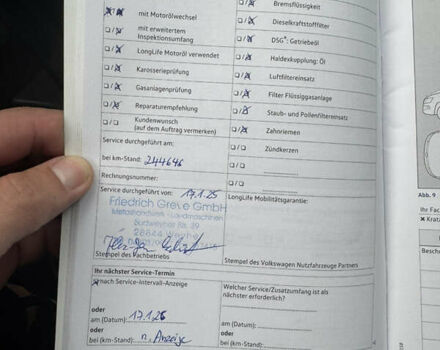 Bremsflüssigkeit
mit Motorölwechsel
Dieselkraftstofffilter
mit erweitertem
Inspektionsumfang
DSG®: Getriebeöl
LongLife Motoröl verwendet
Haldexkupplung: Öl
Karosserieprüfung
Luftfiltereinsatz
Gasanlagenprüfung
Filter Flüssiggasanlage
Reparaturempfehlung
Staub- und Pollenfiltereinsatz
Kundenwunsch
(auf dem Auftrag vermerken)
Zahnriemen
Service durchgeführt am:
Zündkerzen
bei km-Stand: 244646
Rechnungsnummer:
Service durchgeführt von: 17.1.25
LongLife Mobilitätsgarantie:
Friedrich Greve GmbH
Landmaschinen
28844 Weyhe
Stempel des Fachbetriebs
Stempel des Volkswagen Nutzfahrzeuge Partners
Ihr nächster Service-Termin
nach Service-Intervall-Anzeige
Welcher Service/Zusatzumfang ist als
nächster erforderlich?
oder
am (Datum): 17.1.26
oder
am (Datum):
oder
bei (km-Stand): n. Anzeige
oder
bei (km-Stand):
Abb. 9